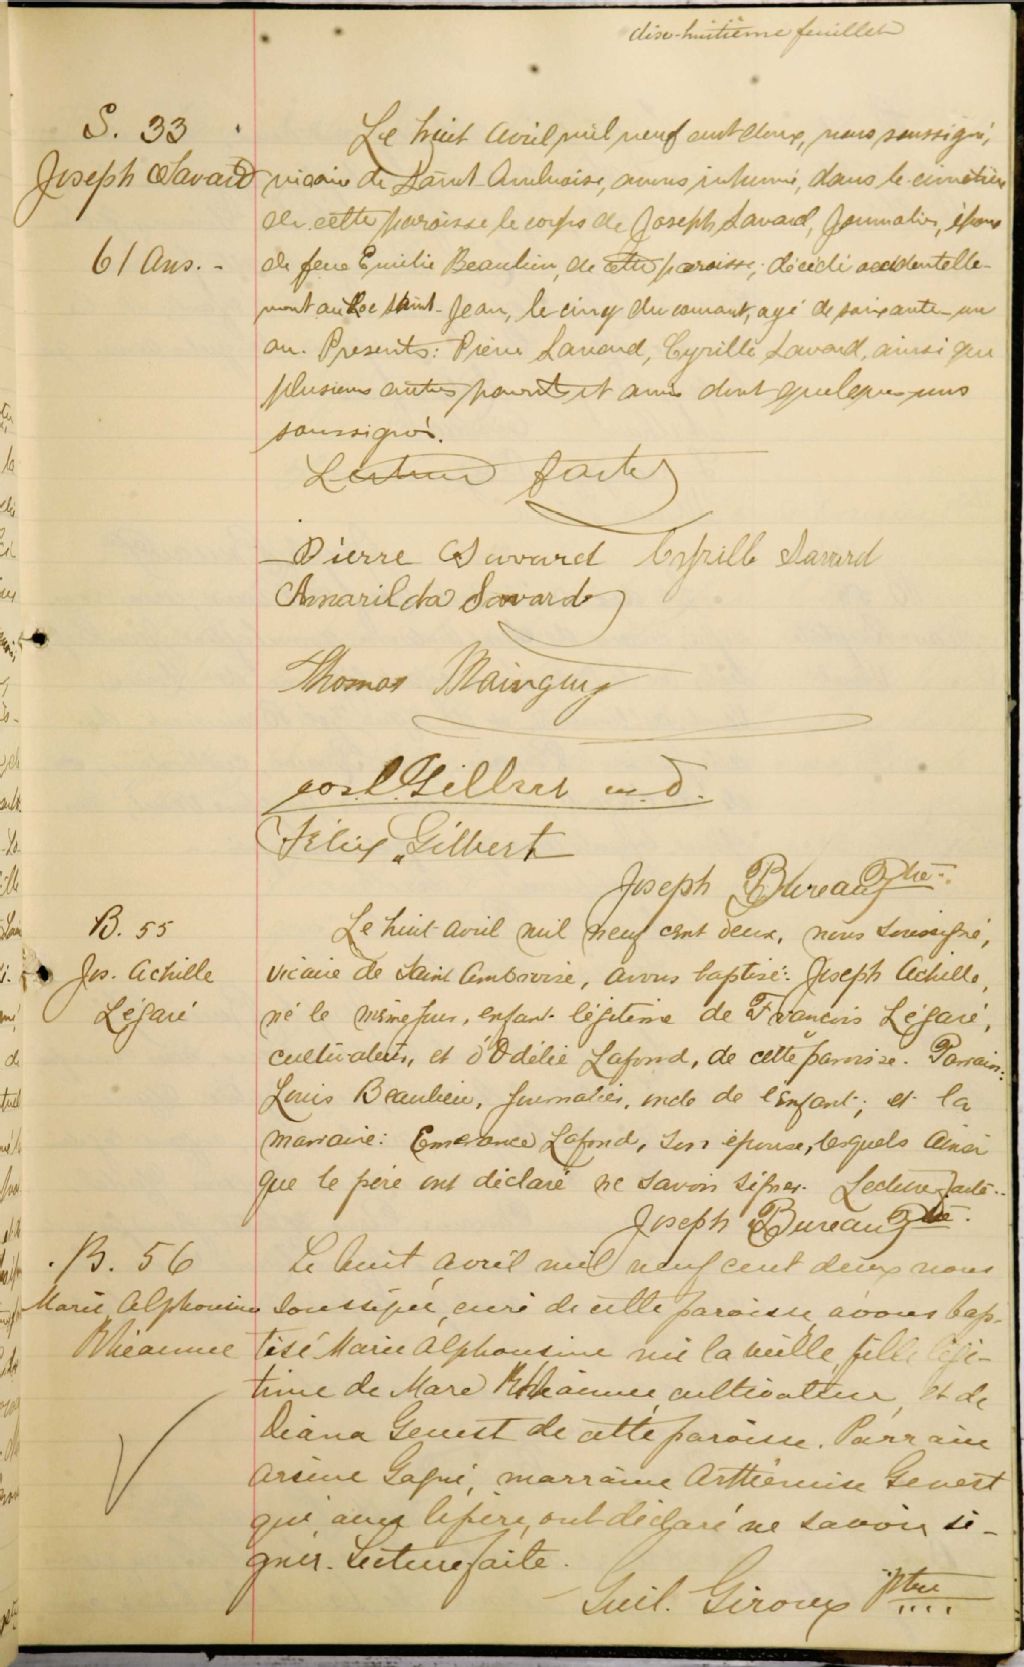 dix-huitième feuillet
S. 33
Joseph Savard
61 Ans.-
Le huit avril mil neuf cent deux, nous soussigné,
vicaire de Saint Ambroise, avons inhumé, dans le cimetière
de cette paroisse le corps de Joseph Savard, Journalier, époux
de feue Emilie Beaulieu, de cette paroisse; décédé accidentelle-
ment au Lac Saint-Jean, le cinq du courant, agé de soixante-un
an. Presents: Pierre Savard, Cyrille Savard, ainsi que
plusieurs autres parents et amis dont quelques-uns
soussignés.
Lecture faite
Pierre Savard Cyrille Savard
Amarilda Savard
Thomas Mainguy
Jos. Gilbert m.d.
Félix Gilbert
Joseph Bureau Ptre
B. 55
Jos. Achille
Légaré
Le huit avril mil neuf cent deux, nous soussigné,
vicaire de Saint Ambroise, avons baptisé: Joseph Achille,
né le même jour, enfant légitime de François Légaré,
cultivateur, et d'Odélie Lafond, de cette paroisse. Parrain:
Louis Beaulieu, Journalier, oncle de l'enfant; et la
marraine: Emerance Lafond, son épouse, lesquels ainsi
que le père ont déclaré ne savoir signer. Lecture faite.
Joseph Bureau Ptre.
B. 56
Marie Alphonsine
Rhéaume
Le huit avril mil neuf cent deux nous
soussigné, curé de cette paroisse avons bap-
tisé Marie Alphonsine née la veille, fille légi-
time de Marc Rhéaume, cultivateur, et de
Diana Genest de cette paroisse. Parrain
Arsène Gagné, marraine Arthémise Genest
qui, avec le père, ont déclaré ne savoir si-
gner. Lecture faite.
Guil. Giroux Ptre